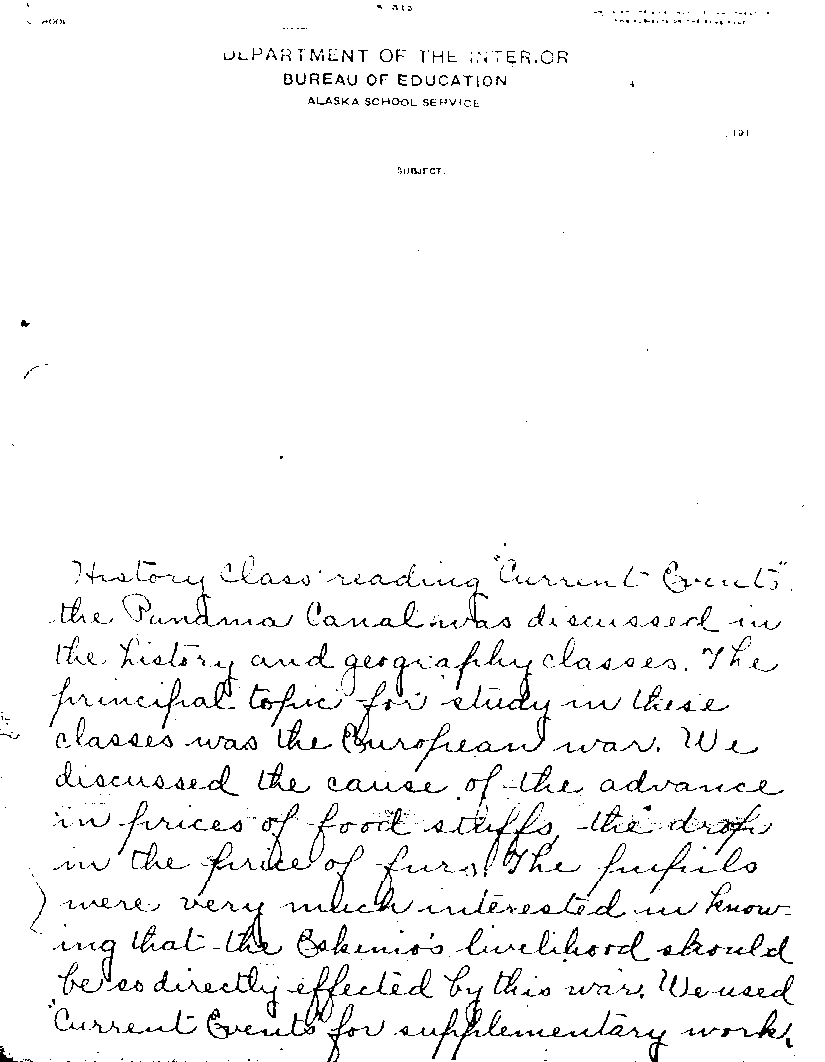 DEPARTMENT OF THE INTERIOR
BUREAU OF EDUCATION
ALASKA SCHOOL SERVICE
, 191
SUBJECT:
History Class reading "Current Events".
the Panama Canal was discussed in
the history and geography classes. The
principal topic for study in these
classes was the European war. We
discussed the cause of the advance
in prices of food stuffs, the drop
in the price of furs. The pupils
were very much interested in know-
ing that the Eskimo's livelihood should
be so directly effected by this war. We used
"Current Events" for supplementary work.